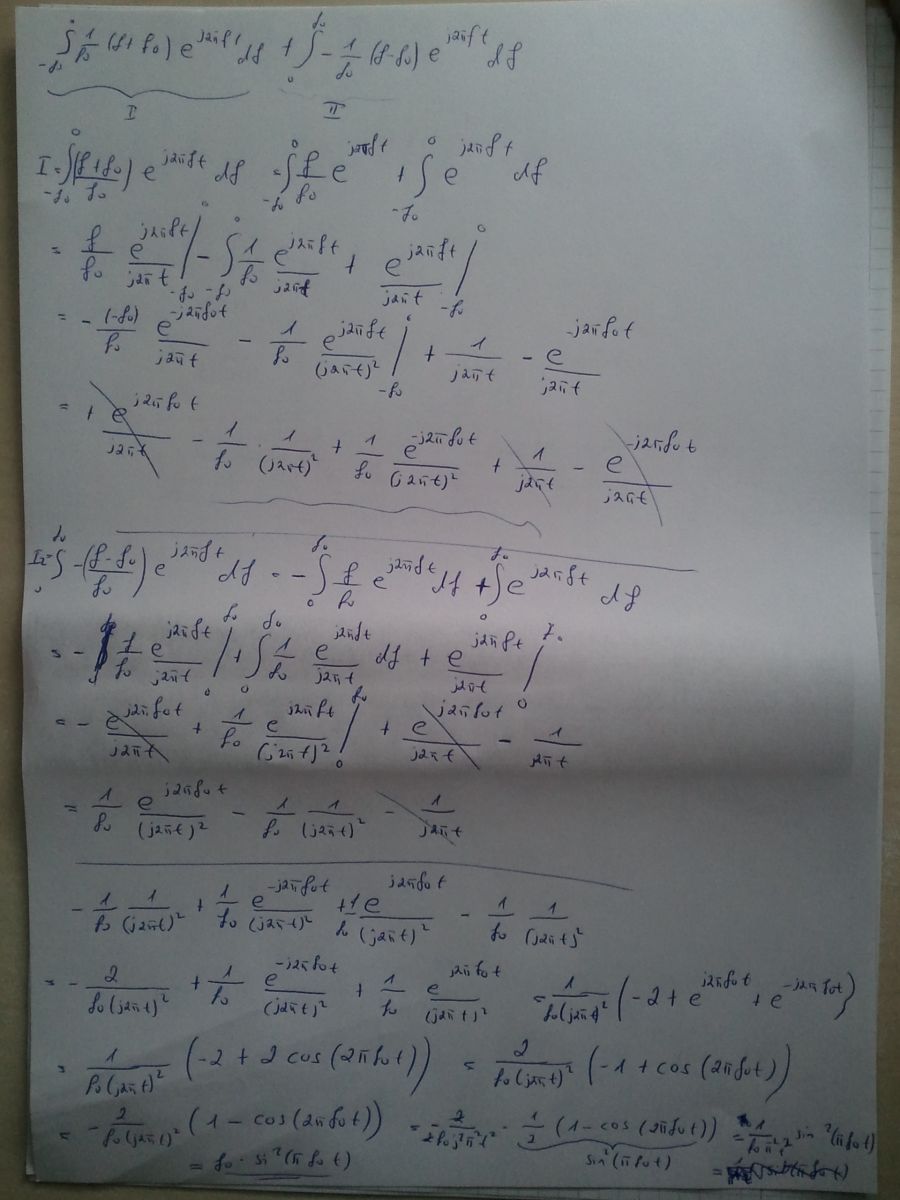 ∫_{-f₀}^{0} 1/f₀ (f+f₀) e^{j2πft} df + ∫_{0}^{f₀} -1/f₀ (f-f₀) e^{j2πft} df
I II
I = ∫_{-f₀}^{0} (f+f₀/f₀) e^{j2πft} df = ∫_{-f₀}^{0} f/f₀ e^{j2πft} + ∫_{-f₀}^{0} e^{j2πft} df
= f/f₀ e^{j2πft}/j2πt |_{-f₀}^{0} - ∫_{-f₀}^{0} 1/f₀ e^{j2πft}/j2πt + e^{j2πft}/j2πt |_{-f₀}^{0}
= - (-f₀)/f₀ e^{-j2πf₀t}/j2πt - 1/f₀ e^{j2πft}/(j2πt)² |_{-f₀}^{0} + 1/j2πt - e^{-j2πf₀t}/j2πt
= + e^{j2πf₀t}/j2πt - 1/f₀ · 1/(j2πt)² + 1/f₀ e^{-j2πf₀t}/(j2πt)² + 1/j2πt - e^{-j2πf₀t}/j2πt
I₂ = ∫_{0}^{f₀} -(f-f₀/f₀) e^{j2πft} df = - ∫_{0}^{f₀} f/f₀ e^{j2πft} df + ∫_{0}^{f₀} e^{j2πft} df
= - f/f₀ e^{j2πft}/j2πt |_{0}^{f₀} + ∫_{0}^{f₀} 1/f₀ e^{j2πft}/j2πt df + e^{j2πft}/j2πt |_{0}^{f₀}
= - e^{j2πf₀t}/j2πt + 1/f₀ e^{j2πft}/(j2πt)² |_{0}^{f₀} + e^{j2πf₀t}/j2πt - 1/j2πt
= 1/f₀ e^{j2πf₀t}/(j2πt)² - 1/f₀ 1/(j2πt)² - 1/j2πt
- 1/f₀ 1/(j2πt)² + 1/f₀ e^{-j2πf₀t}/(j2πt)² + 1/f₀ e^{j2πf₀t}/(j2πt)² - 1/f₀ 1/(j2πt)²
= - 2/f₀(j2πt)² + 1/f₀ e^{-j2πf₀t}/(j2πt)² + 1/f₀ e^{j2πf₀t}/(j2πt)² = 1/f₀(j2πt)² (-2 + e^{j2πf₀t} + e^{-j2πf₀t})
= 1/f₀(j2πt)² (-2 + 2 cos(2πf₀t)) = 2/f₀(j2πt)² (-1 + cos(2πf₀t))
= - 2/f₀(j2πt)² (1 - cos(2πf₀t)) = - 2/2f₀j²π²t² · 1/2 (1 - cos(2πf₀t)) = 1/f₀π²t² sin²(πf₀t)
sin²(πf₀t)
= f₀ · si²(πf₀t)